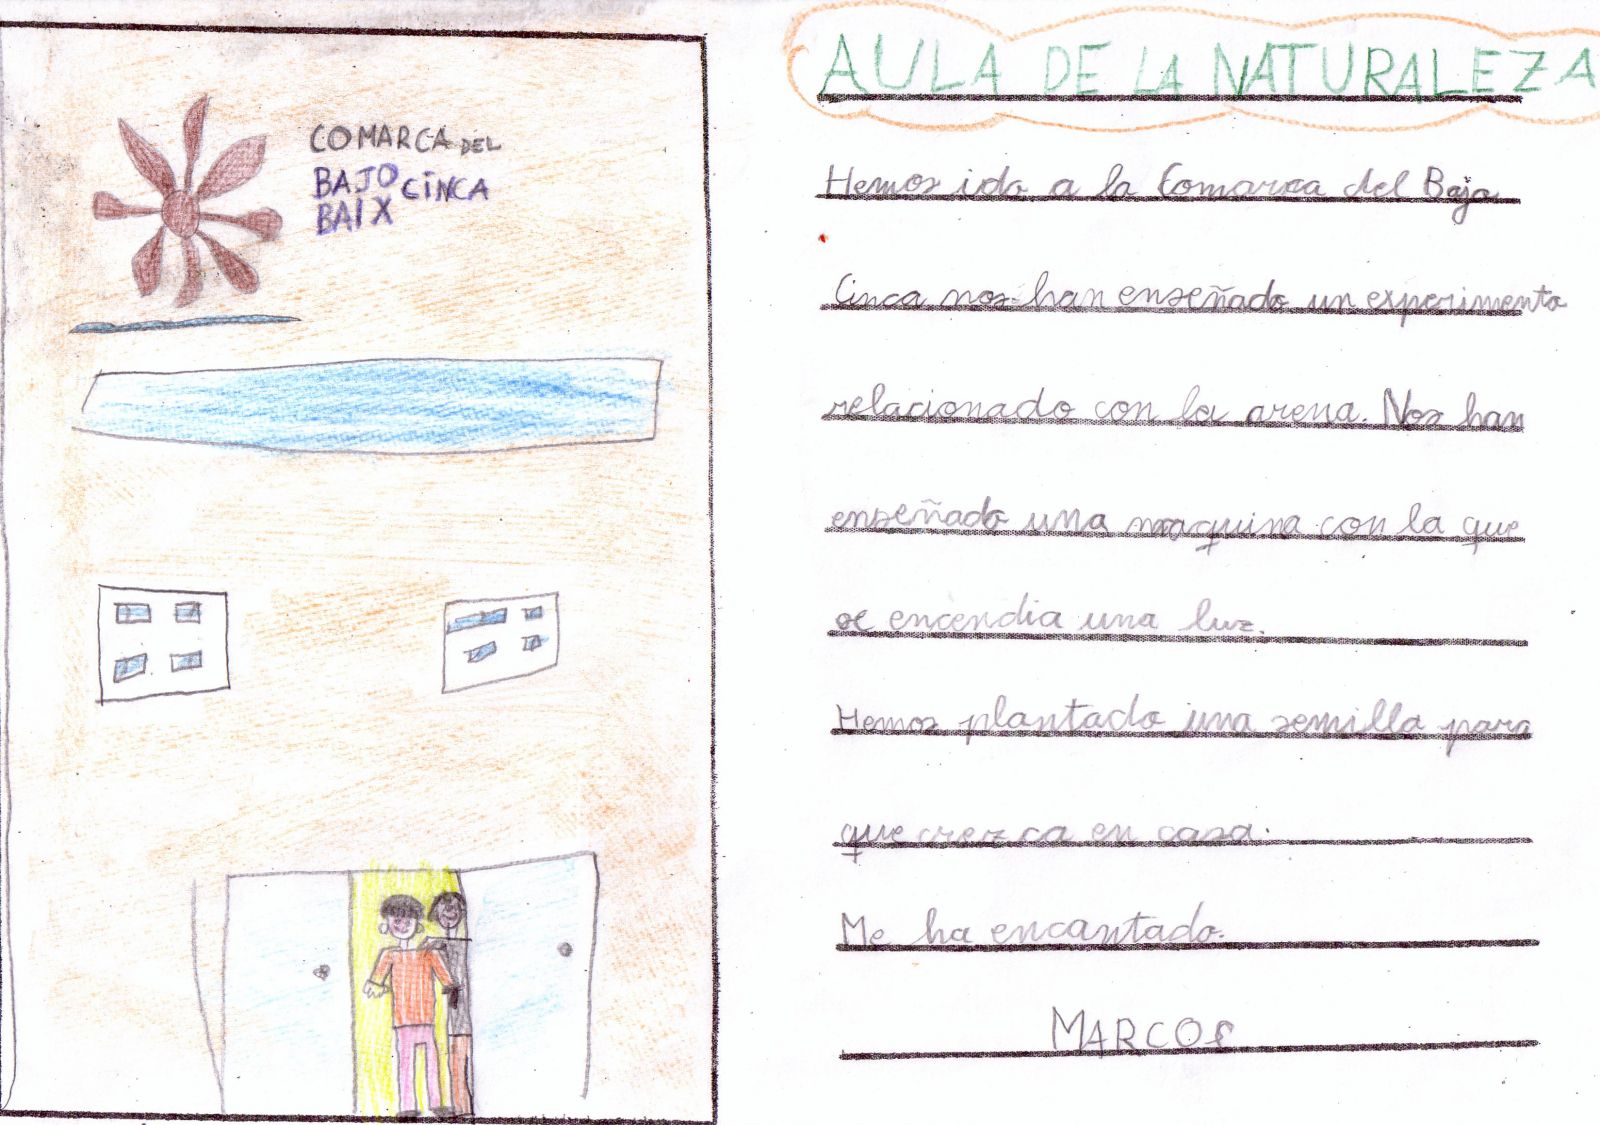 COMARCA DEL
BAJO CINCA
BAIX
AULA DE LA NATURALEZA
Hemos ido a la Comarca del Bajo
Cinca nos han enseñado un experimento
relacionado con la arena. Nos han
enseñado una maquina con la que
se encendia una luz.
Hemos plantado una semilla para
que crezca en casa.
Me ha encantado.
MARCOS